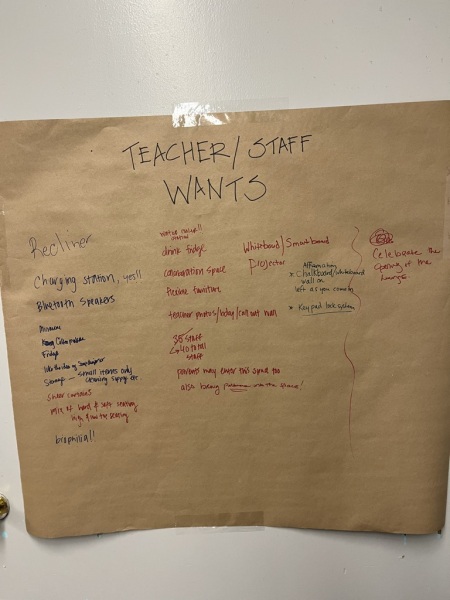 TEACHER/STAFF
WANTS
Recliner
Charging station, yes!!
Bluetooth Speakers
Fridge
Storage — small items only
cleaning supply etc
sheer curtains
mix of hard & soft seating
high & low seating
biophilia!!
drink fridge
collaboration space
flexible furniture
teacher photos/bday/call out wall
35 staff
40 total
staff
parents may enter this space too
also being the space!
Whiteboard/Smartboard
Projector
Affirmation
* Chalkboard/whiteboard
wall on
left as you come in
* Keypad lock system
Celebrate the
opening of the
lounge